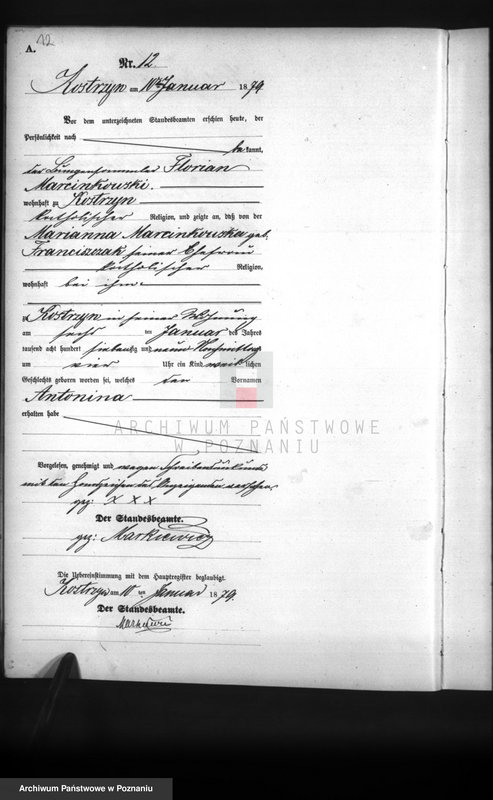 A. 12
Nr. 12.
Kostrzyn am 10ten Januar 1879.
Vor dem unterzeichneten Standesbeamten erschien heute, der
Persönlichkeit nach
bekannt,
der Florian
Marcinkowski.
wohnhaft zu Kostrzyn
katholischer Religion, und zeigte an, daß von der
Marianna Marcinkowska geb.
Franciszczak seiner Ehefrau
katholischer Religion,
wohnhaft bei ihm
zu Kostrzyn in seiner Wohnung
am sechs ten Januar des Jahres
tausend acht hundert siebenzig und neun Nachmittag
um vier Uhr ein Kind weiblichen
Geschlechts geboren worden sei, welches den Vornamen
Antonina
erhalten habe
ARCHIWUM PAŃSTWOWE
W POZNANIU
Vorgelesen, genehmigt und wegen Schreibensunkunde
mit den Handzeichen des Anzeigenden versehen.
gez: X X X
Der Standesbeamte.
gez: Markiewicz
Die Uebereinstimmung mit dem Hauptregister beglaubigt.
Kostrzyn am 10 ten Januar 1879.
Der Standesbeamte.
Markiewicz
Archiwum Państwowe w Poznaniu